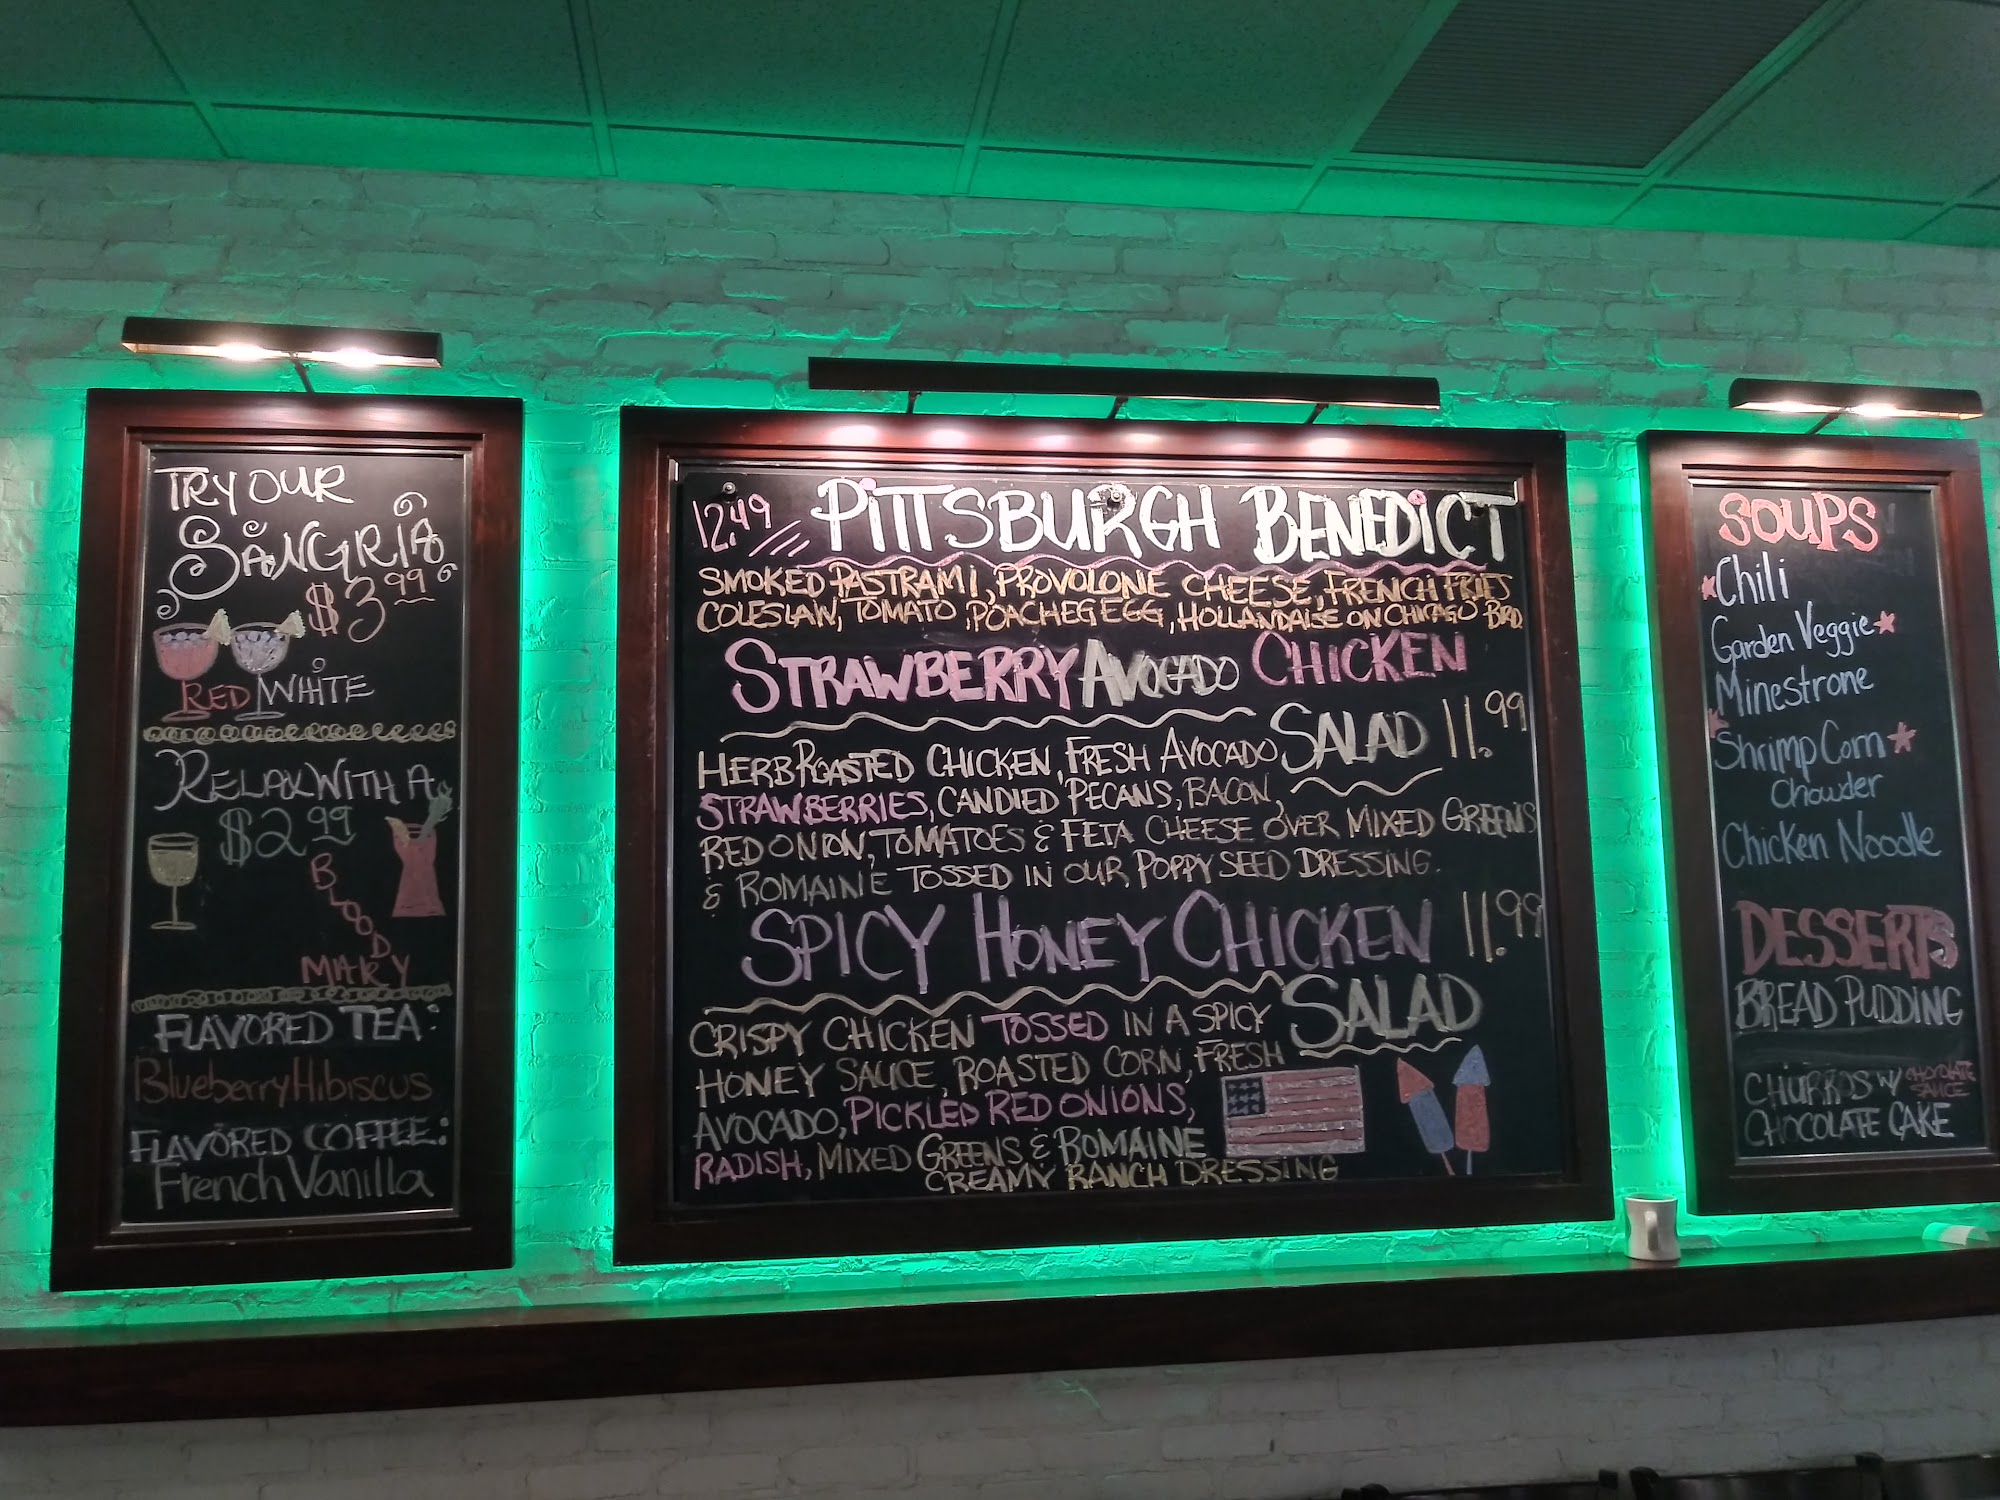 TRY OUR
SANGRIA
$3.99
RED WHITE
RELAX WITH A
$2.99
BLOOD
MARY
FLAVORED TEA:
Blueberry Hibiscus
FLAVORED COFFEE:
French Vanilla
12.49 PiTTSBURGH BENEDiCT
SMOKED PASTRAMI, PROVOLONE CHEESE, FRENCH FRIES
COLESLAW, TOMATO, POACHEG EGG, HOLLANDAISE ON CHICAGO BRD.
STRAWBERRY AVOCADO CHICKEN
SALAD 11.99
HERB ROASTED CHICKEN, FRESH AVOCADO
STRAWBERRIES, CANDIED PECANS, BACON,
RED ONION, TOMATOES & FETA CHEESE OVER MIXED GREENS
& ROMAINE TOSSED IN OUR POPPY SEED DRESSING.
SPICY HONEY CHICKEN 11.99
SALAD
CRISPY CHICKEN TOSSED IN A SPICY
HONEY SAUCE, ROASTED CORN, FRESH
AVOCADO, PICKLED RED ONIONS,
RADISH, MIXED GREENS & ROMAINE
CREAMY RANCH DRESSING
SOUPS
Chili
Garden Veggie
Minestrone
Shrimp Corn
Chowder
Chicken Noodle
DESSERTS
BREAD PUDDING
CHURROS W/ CHOCOLATE
SAUCE
CHOCOLATE CAKE